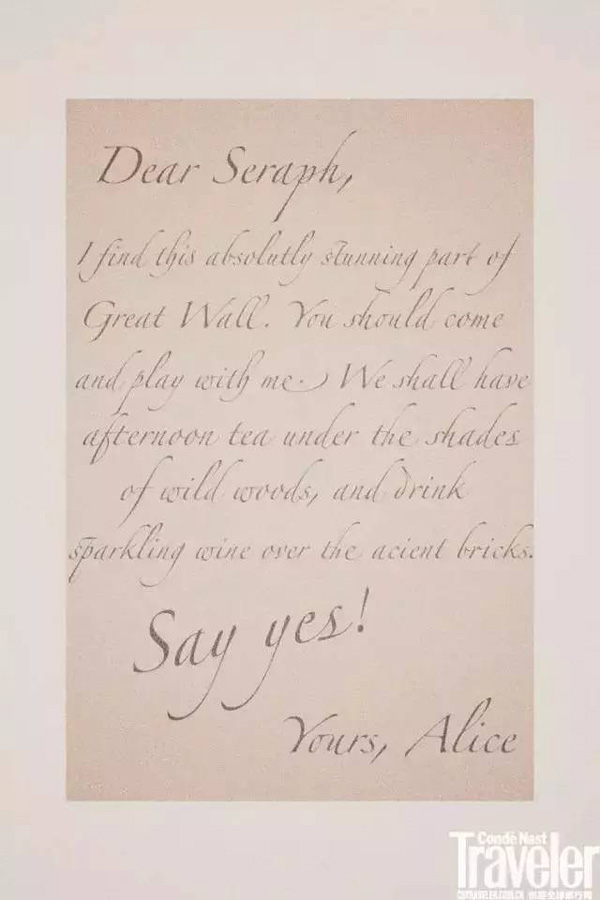 Dear Seraph,
I find this absolutly stunning part of
Great Wall. You should come
and play with me. We shall have
afternoon tea under the shades
of wild woods, and drink
sparkling wine over the acient bricks.
Say yes!
Yours, Alice
Condé Nast
Traveler